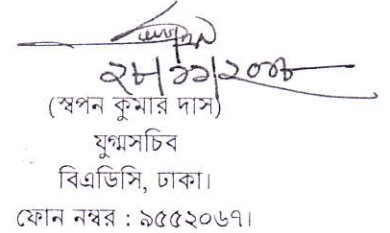 ২৮/১১/২০১৮
(স্বপন কুমার দাস)
যুগ্মসচিব
বিএডিসি, ঢাকা।
ফোন নম্বর : ৯৫৫২০৬৭।